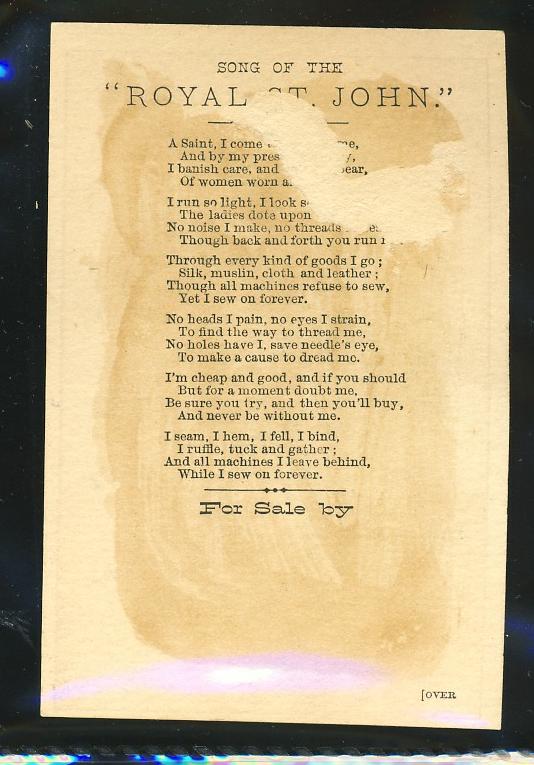 SONG OF THE
"ROYAL ST. JOHN."
A Saint, I come
And by my pres
I banish care, and
Of women worn
I run so light, I look
The ladies dote upon
No noise I make, no threads
Though back and forth you run
Through every kind of goods I go;
Silk, muslin, cloth and leather;
Though all machines refuse to sew,
Yet I sew on forever.
No heads I pain, no eyes I strain,
To find the way to thread me,
No holes have I, save needle's eye,
To make a cause to dread me.
I'm cheap and good, and if you should
But for a moment doubt me,
Be sure you try, and then you'll buy,
And never be without me.
I seam, I hem, I fell, I bind,
I ruffle, tuck and gather;
And all machines I leave behind,
While I sew on forever.
For Sale by
[OVER